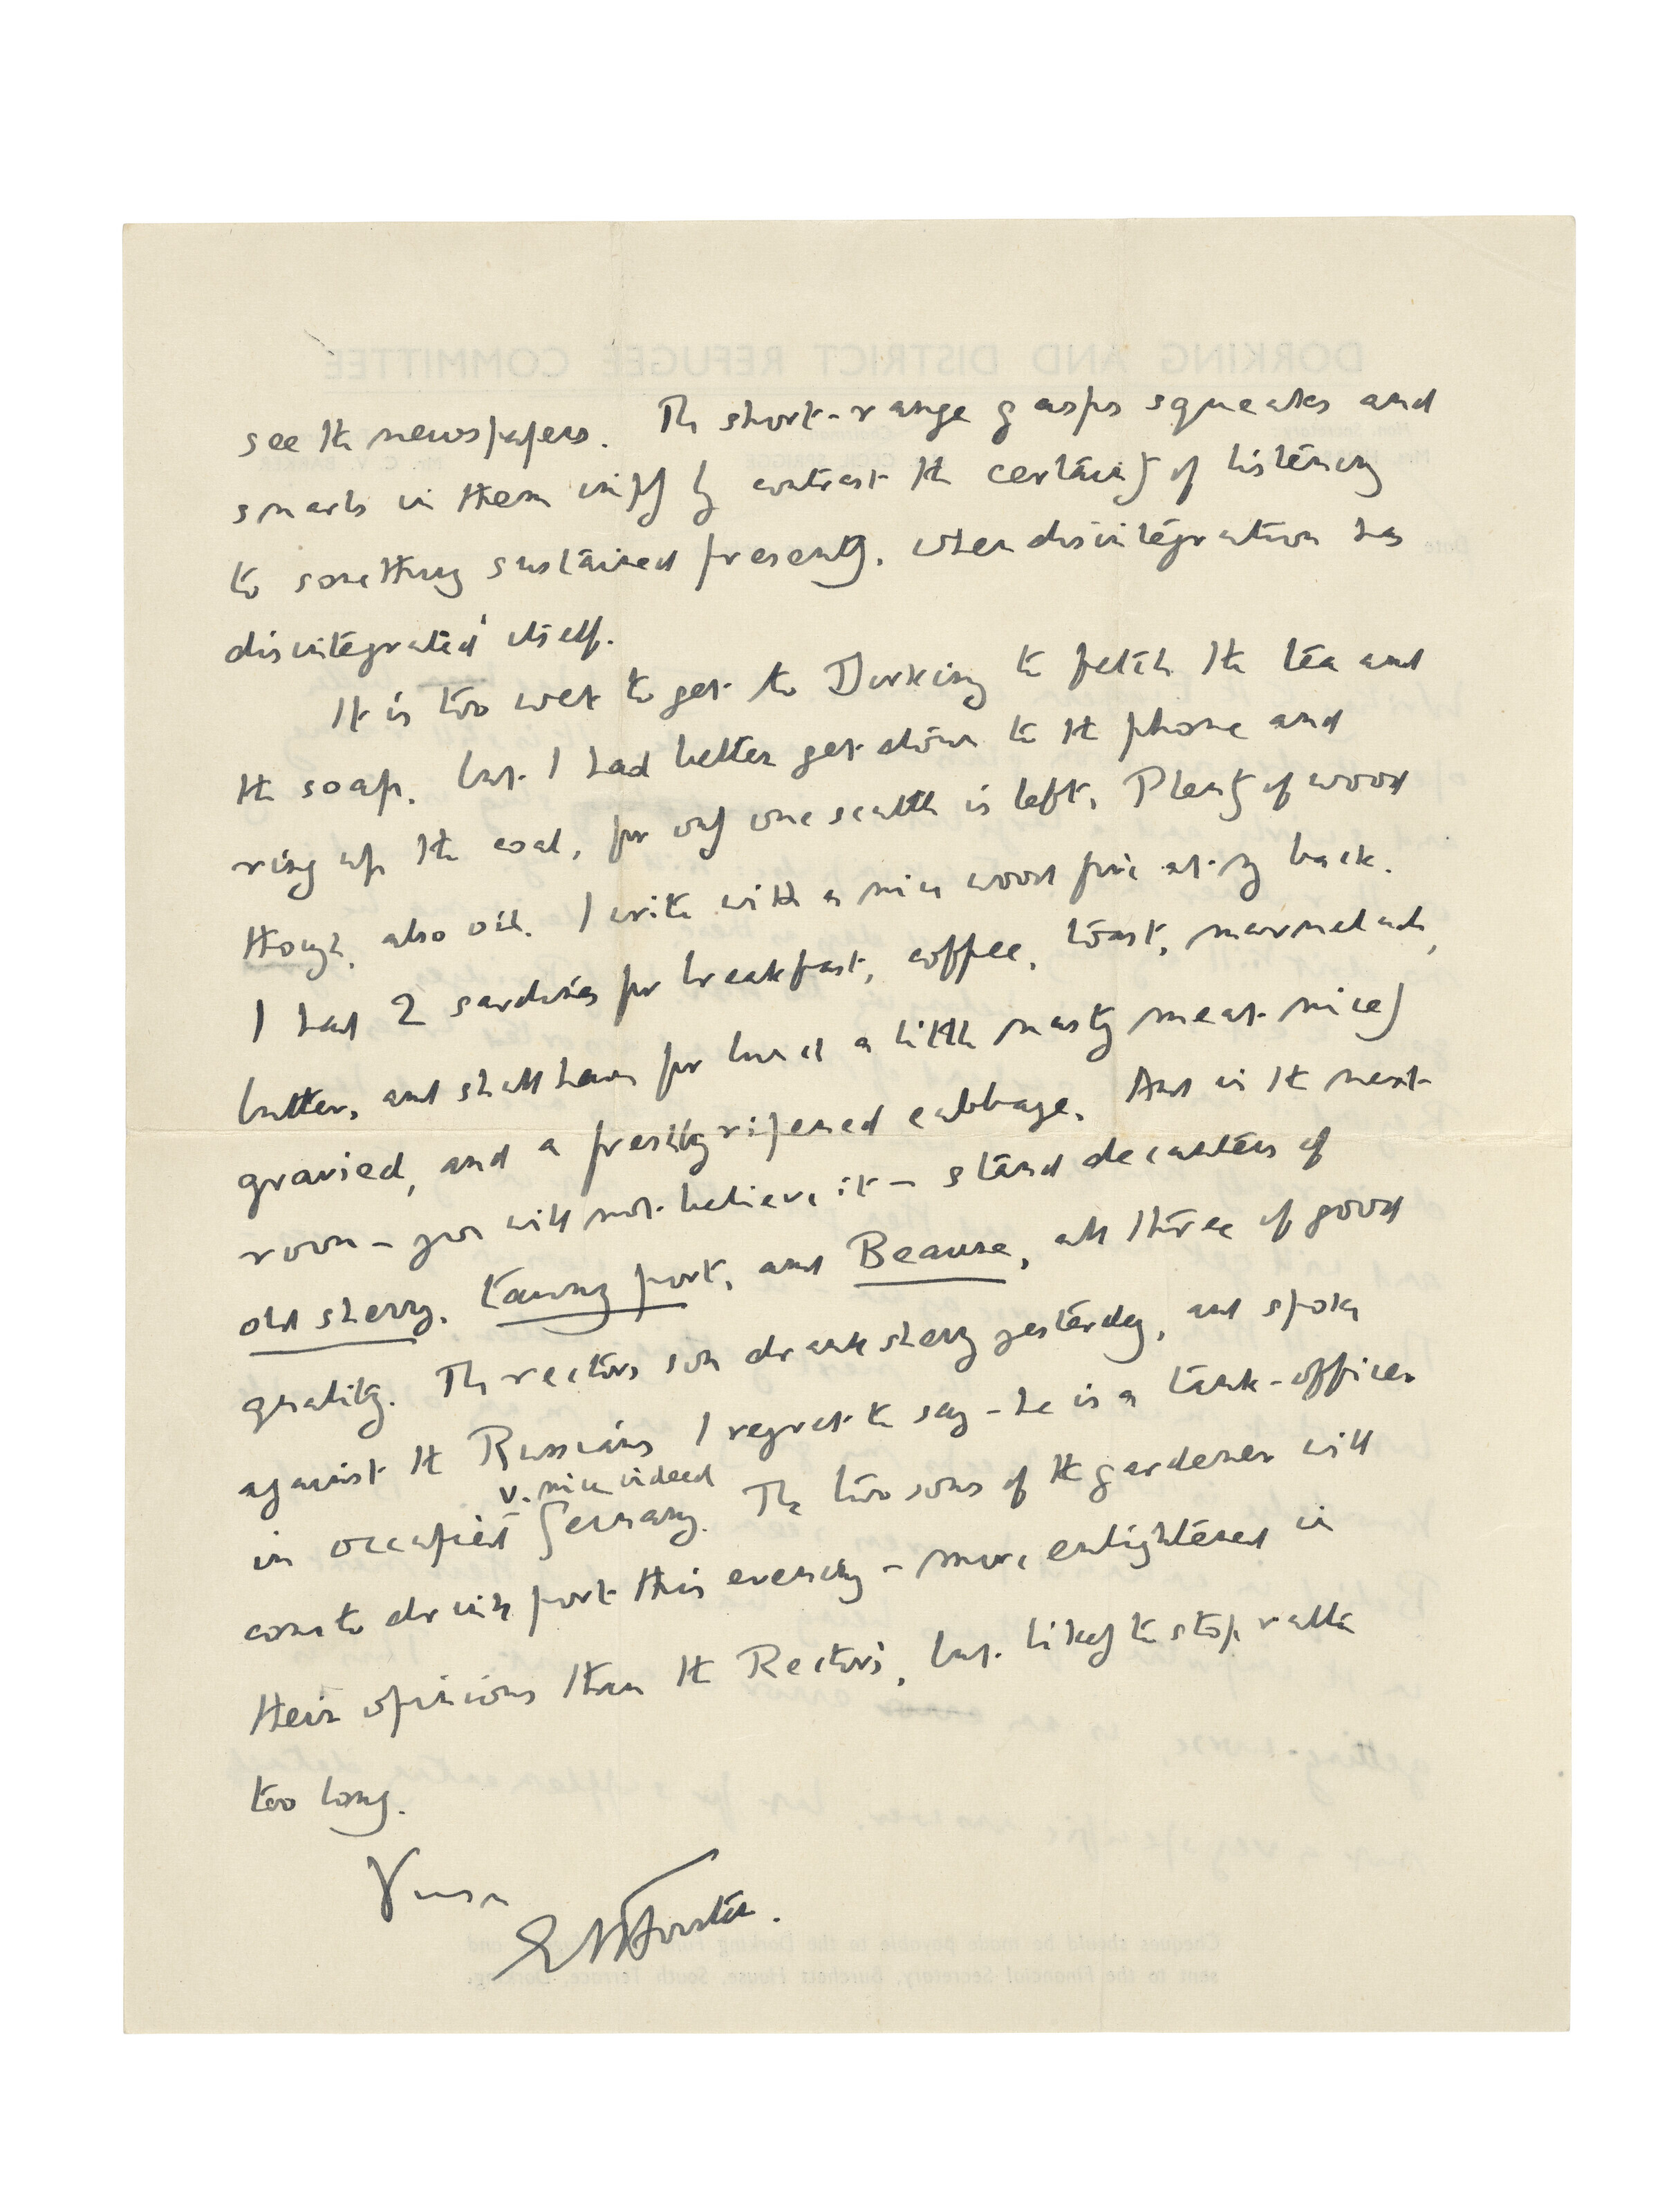 see the newspapers. The short-range gasps squeaks and
snarls in them imply by contrast the certainty of listening
to something sustained presently, when disintegration has
disintegrated itself.
It is too wet to get to Dorking to fetch the tea and
the soap, but I had better get down to the phone and
ring up the coal, for only one scuttle is left. Plenty of wood
though, also oil. I write with a nice wood fire at my back.
I had 2 sardines for breakfast, coffee, toast, marmelade,
butter, and shall have for lunch a little nasty meat nicely
gravied, and a freshly ripened cabbage. And in the next
room – you will not believe it – stand decanters of
old sherry, tawny port, and Beaune, all three of good
quality. The rectors son drank sherry yesterday, and spoke
against the Russians I regret to say – he is a tank-officer
v. nice indeed
in occupied Germany. The two sons of the gardener will
come to drink port this evening – more enlightened in
their opinions than the Rector's, but likely to stop rather
too long.
Yours
EMForster.
DORKING AND DISTRICT REFUGEE COMMITTEE
Date
Cheques should be made payable to the Dorking
sent to the Financial Secretary, Burchets House, South Terrace, Dorking.